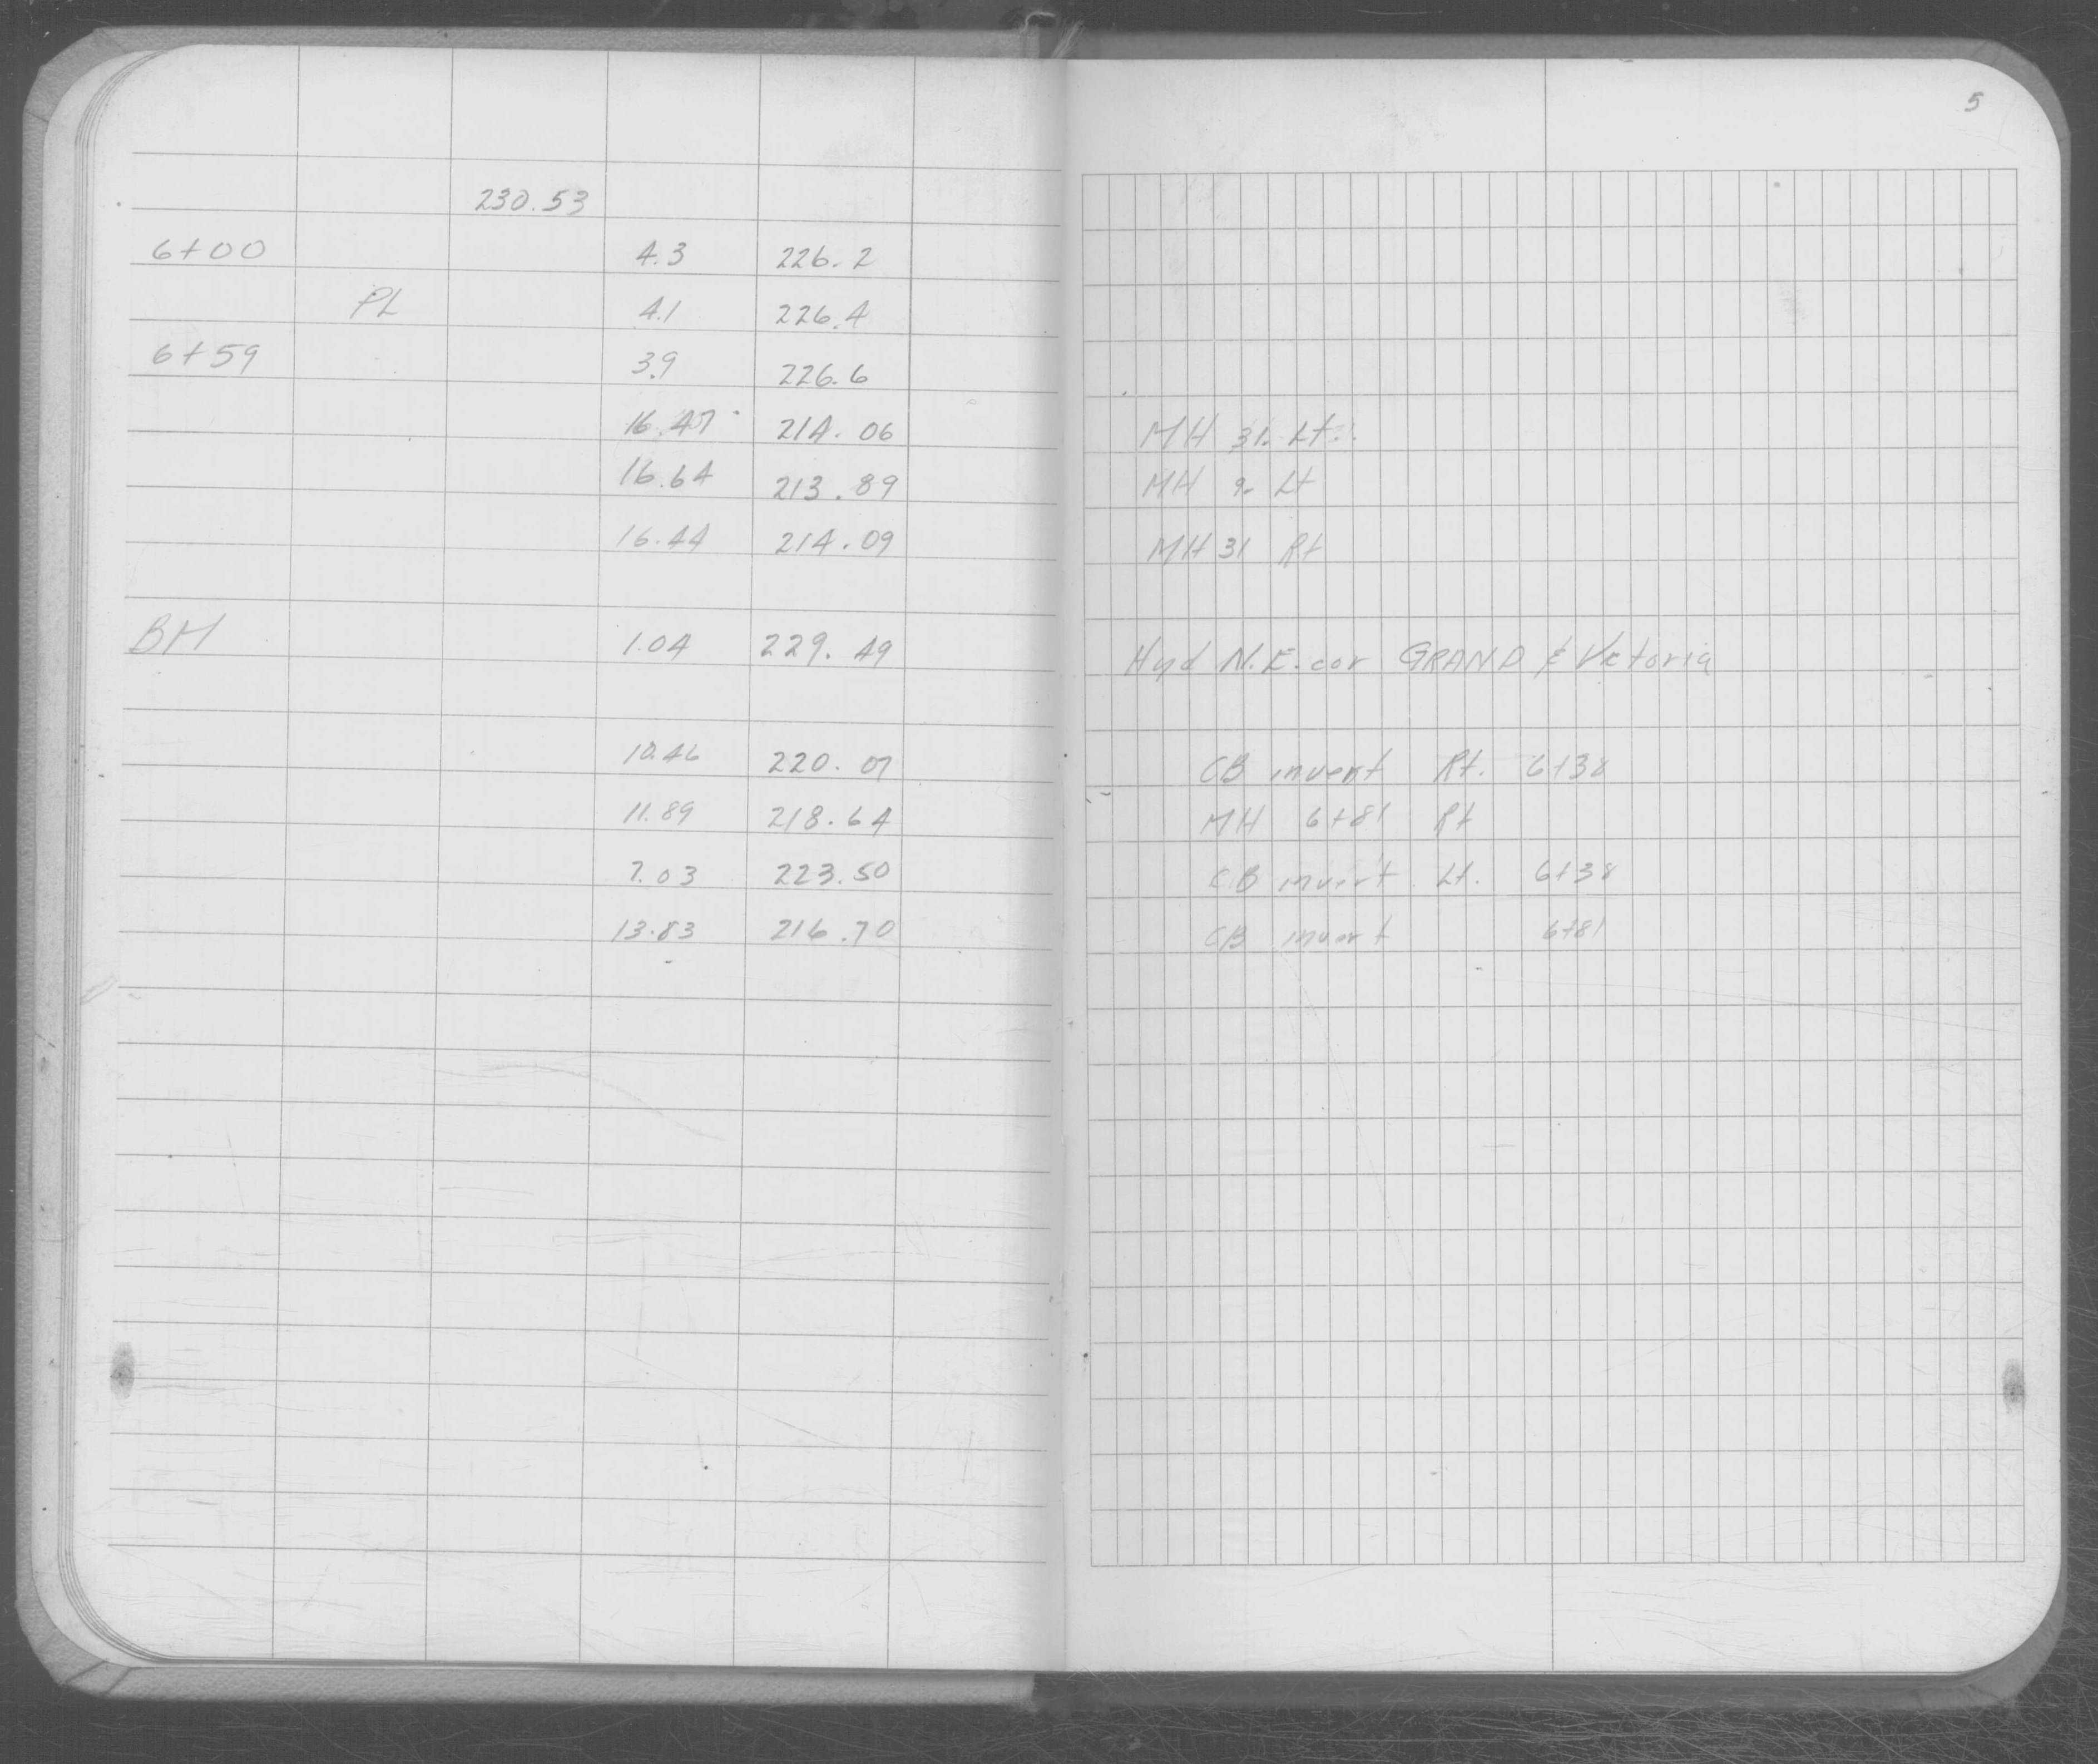 5
230.53
6+00 4.3 226.2
PL 4.1 226.4
6+59 3.9 226.6
16.47 214.06 MH 31. Lt.
16.64 213.89 MH 9. Lt
16.44 214.09 MH 31 Rt
BM 1.04 229.49 Hyd N.E. cor GRAND & Victoria
10.46 220.07 CB invert Rt. 6+38
11.89 218.64 MH 6+81 Rt
7.03 223.50 CB invert Lt. 6+38
13.83 216.70 CB invert 6+81